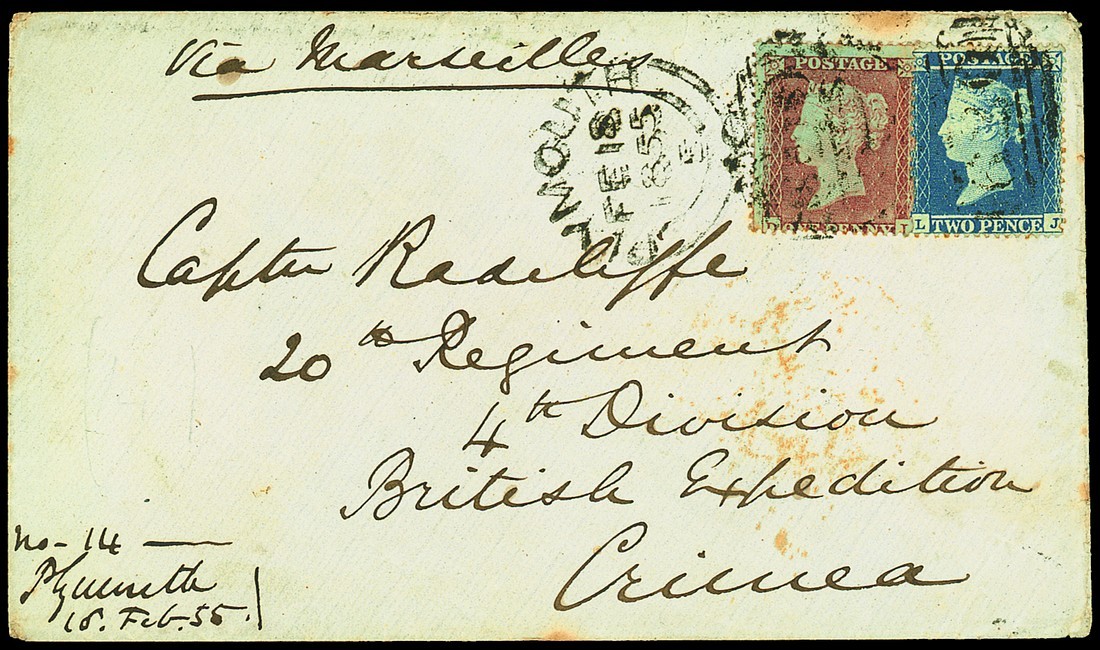 Via Marseilles
LYMOUTH
FE 18
1855
E
POSTAGE
POSTAGE
L TWO PENCE J
Captn Radcliffe
20th Regiment
4th Division
British Expedition
Crimea
No - 14 —
Plymouth
18. Feb. 55.